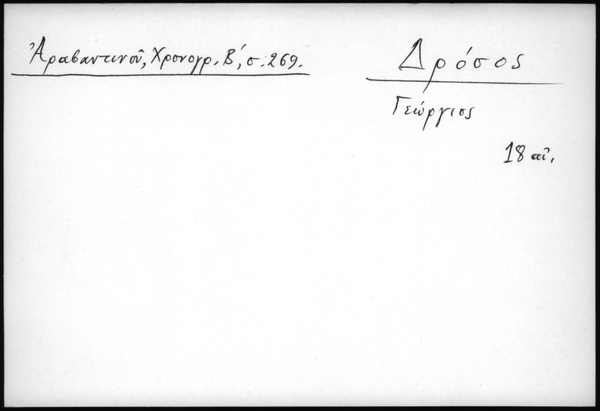 Ἀραβαντινοῦ, Χρονογρ. Β΄, σ. 269.
Δρόσος
Γεώργιος
18 αἰ.